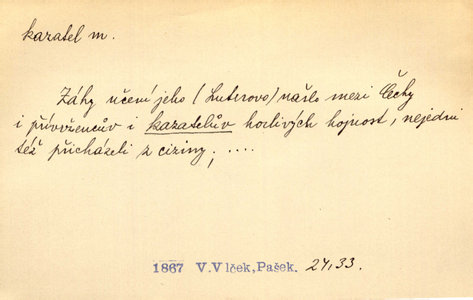 kazatel m.
Záhy učení jeho (Luterovo) našlo mezi Čechy
i přívržencův i kazatelův horlivých hojnost, nejedni
též přicházeli z ciziny; ....
1867 V.Vlček, Pašek. 24,33.